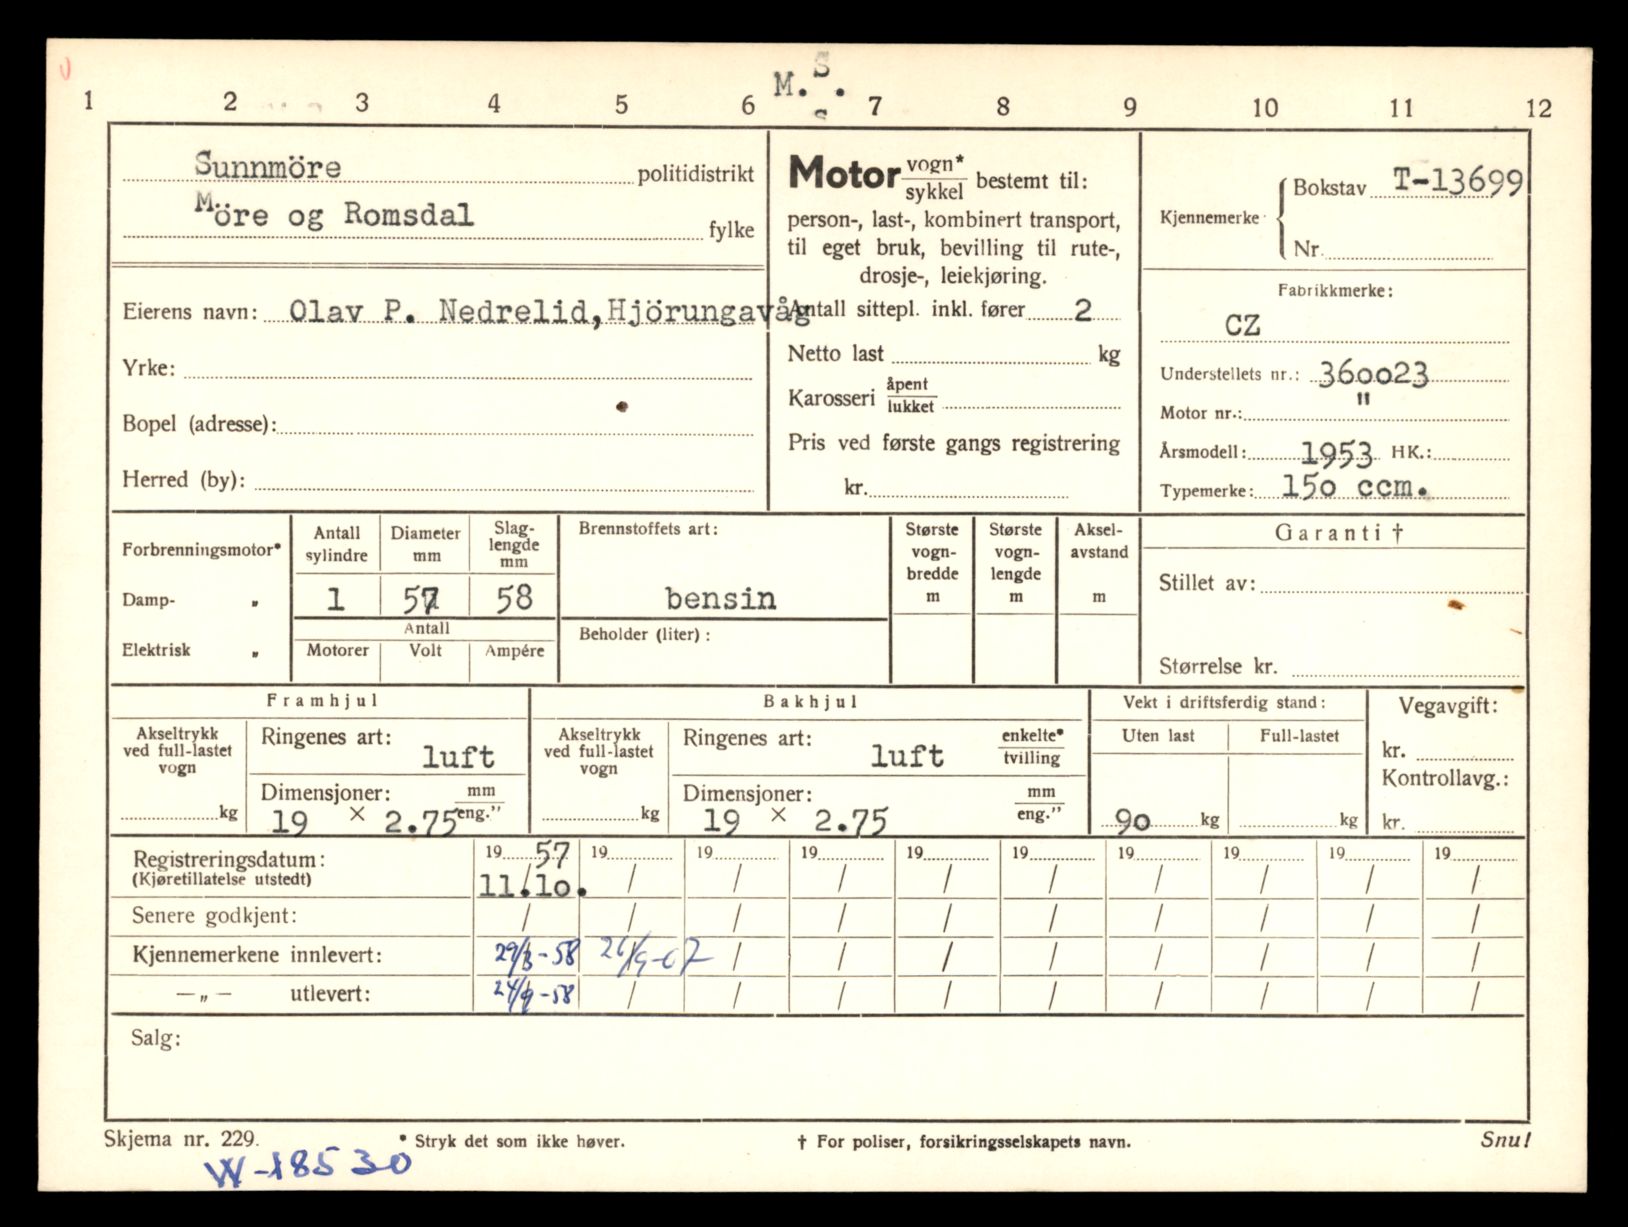 M. S.
1 2 3 4 5 6 7 8 9 10 11 12
Sunnmöre politidistrikt
Möre og Romsdal fylke
Eierens navn: Olav P. Nedrelid, Hjörungavåg
Yrke:
Bopel (adresse):
Herred (by):
Motor vogn* / sykkel bestemt til:
person-, last-, kombinert transport,
til eget bruk, bevilling til rute-,
drosje-, leiekjøring.
Antall sittepl. inkl. fører 2
Netto last kg
Karosseri åpent / lukket
Pris ved første gangs registrering
kr.
Kjennemerke Bokstav T-13699
Nr.
Fabrikkmerke:
CZ
Understellets nr.: 360023
Motor nr.: "
Årsmodell: 1953 HK.:
Typemerke: 150 ccm.
Forbrenningsmotor*
Damp- „
Elektrisk „
Antall sylindre Diameter mm Slag-lengde mm
1 57 58
Antall
Motorer Volt Ampére
Brennstoffets art:
bensin
Beholder (liter):
Største vogn-bredde m
Største vogn-lengde m
Aksel-avstand m
Garanti †
Stillet av:
Størrelse kr.
Framhjul
Akseltrykk
ved full-lastet
vogn
kg
Ringenes art: luft
Dimensjoner: mm / eng."
19 × 2.75
Bakhjul
Akseltrykk
ved full-lastet
vogn
kg
Ringenes art: luft enkelte* / tvilling
Dimensjoner: mm / eng."
19 × 2.75
Vekt i driftsferdig stand:
Uten last Full-lastet
90 kg kg
Vegavgift:
kr.
Kontrollavg.:
kr.
Registreringsdatum: 19 57 19 19 19 19 19 19 19 19 19
(Kjøretillatelse utstedt) 11.10. / / / / / / / / /
Senere godkjent: / / / / / / / / / /
Kjennemerkene innlevert: 29/3-58 26/9-67 / / / / / / / /
—„— utlevert: 24/9-58 / / / / / / / / /
Salg:
Skjema nr. 229. * Stryk det som ikke høver. † For poliser, forsikringsselskapets navn. Snu!
W-18530